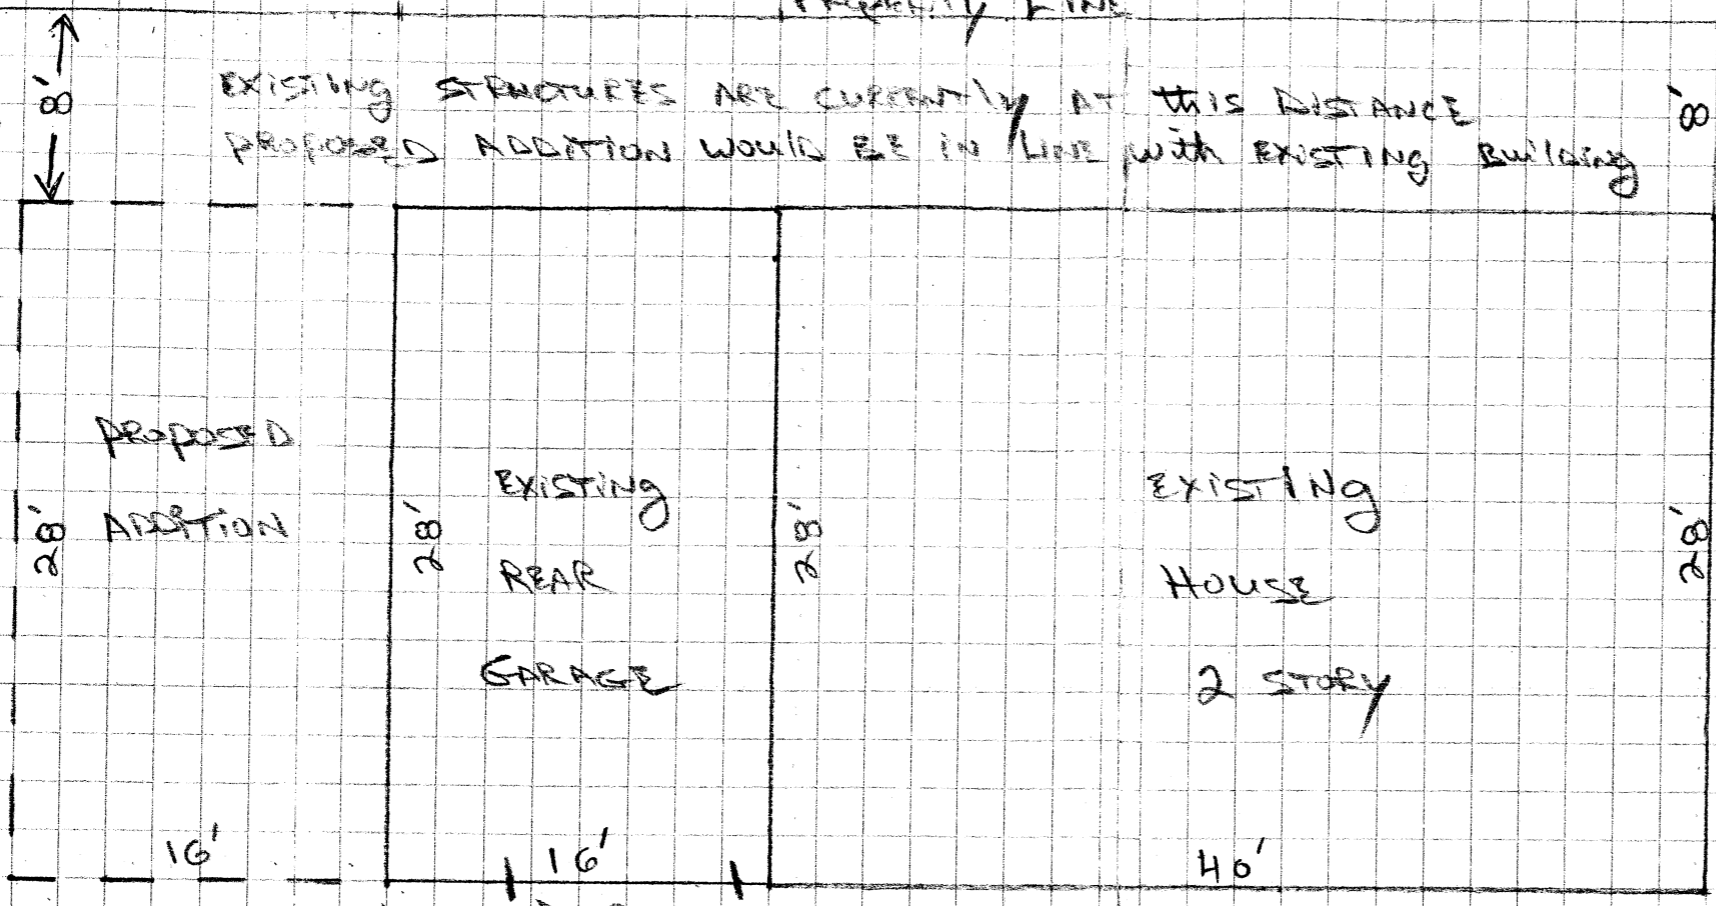 PROPERTY LINE
8'
EXISTING STRUCTURES ARE CURRENTLY AT this DISTANCE
8'
PROPOSED ADDITION WOULD BE IN LINE with EXISTING BuilDing
PROPOSED
ADDITION
28'
16'
EXISTING
REAR
GARAGE
28'
16'
EXISTING
HOUSE
2 STORY
28'
28'
40'